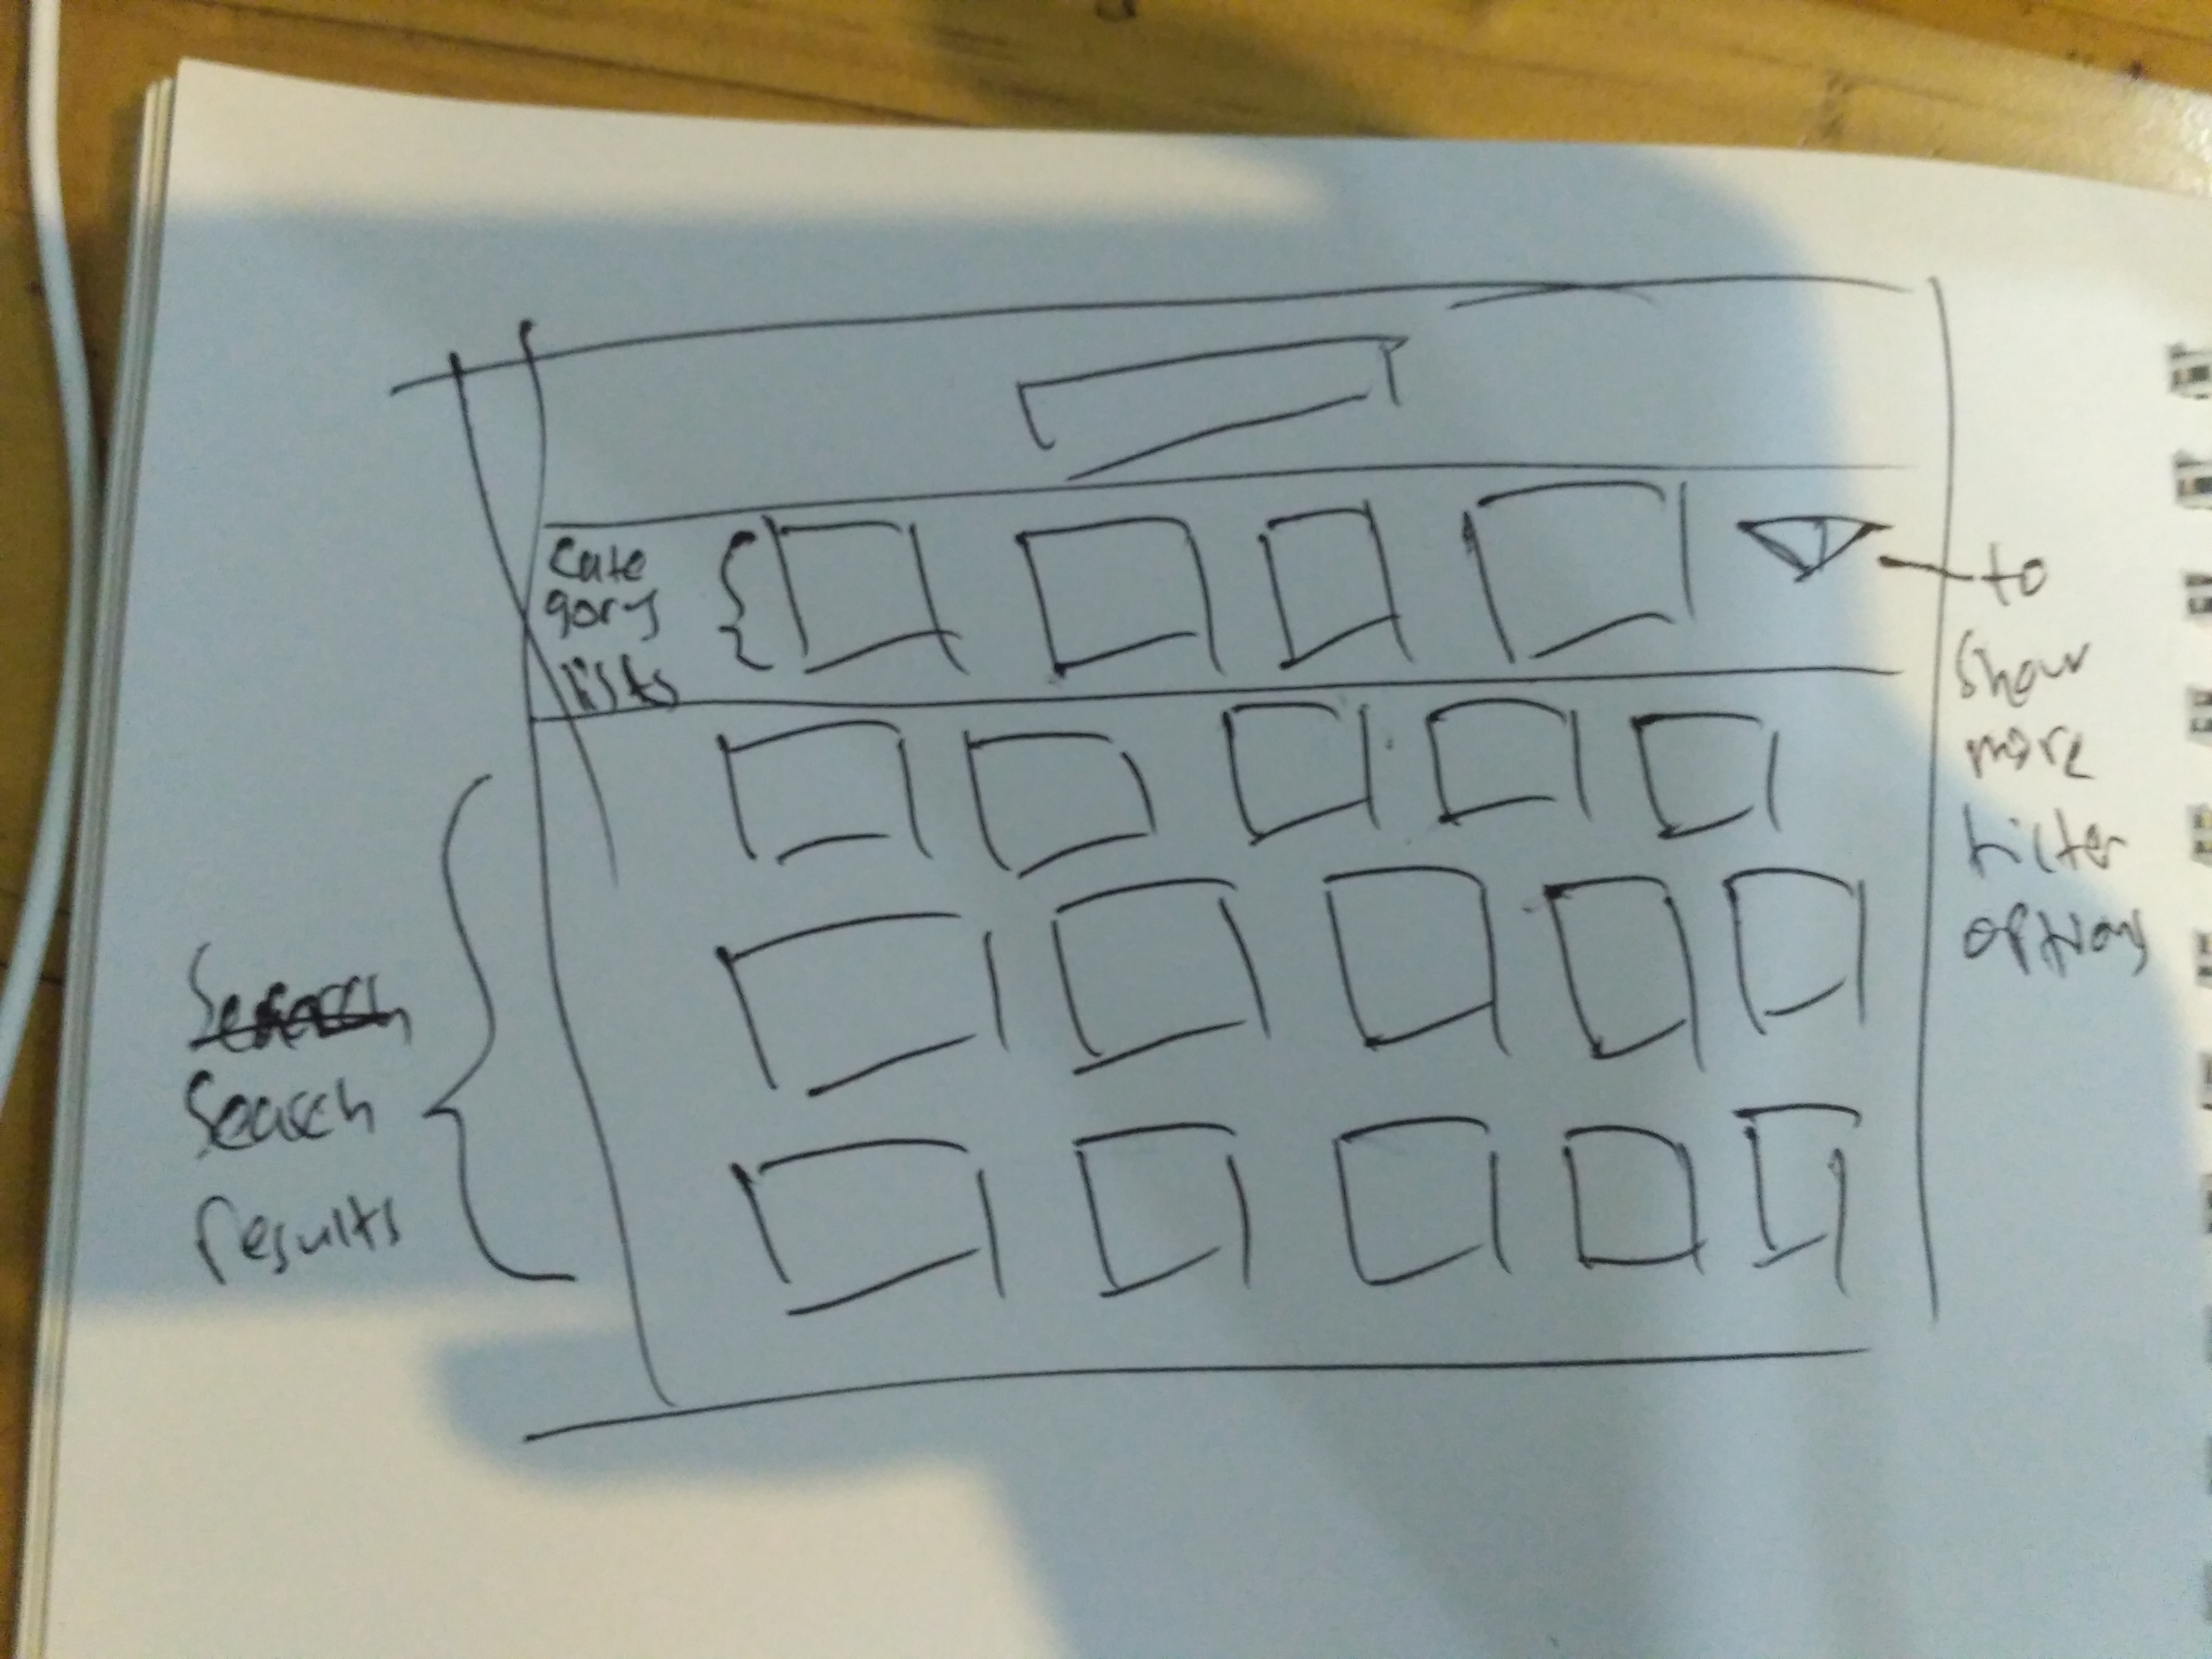 Cate
gory
lists
to
show
more
filter
options
Search
Search
results